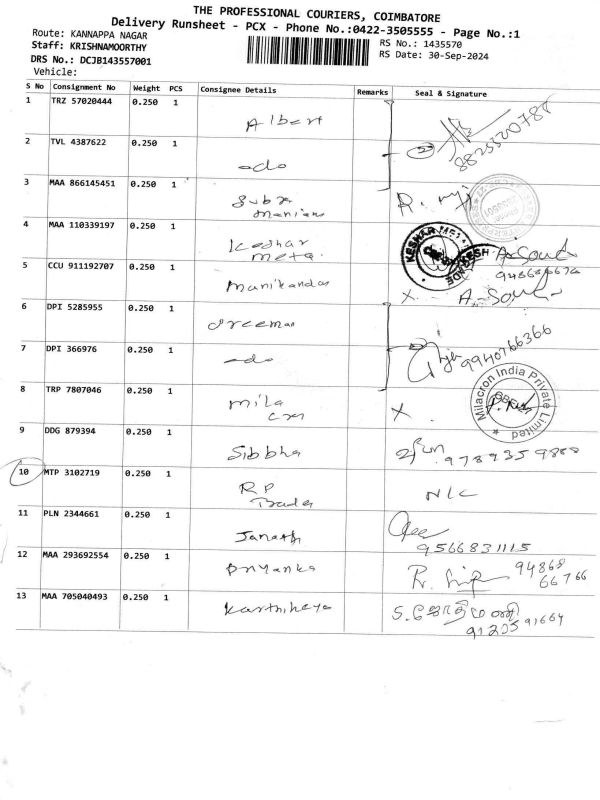 THE PROFESSIONAL COURIERS, COIMBATORE
Delivery Runsheet - PCX - Phone No.:0422-3505555 - Page No.:1
Route: KANNAPPA NAGAR
RS No.: 1435570
Staff: KRISHNAMOORTHY
RS Date: 30-Sep-2024
DRS No.: DCJB143557001
Vehicle:
S No Consignment No Weight PCS Consignee Details Remarks Seal & Signature
1 TRZ 57020444 0.250 1 Albert
2 TVL 4387622 0.250 1 -do- 8825520788
3 MAA 866145451 0.250 1 Subra
manian R.
4 MAA 110339197 0.250 1 Keshar
meta
5 CCU 911192707 0.250 1 Manikandan X
6 DPI 5285955 0.250 1
7 DPI 366976 0.250 1 -do- 9940766366
8 TRP 7807046 0.250 1 mila
cron X Milacron India Private Limited
9 DDG 879394 0.250 1 Sibbha 9789359888
10 MTP 3102719 0.250 1 RP
Trader N/C
11 PLN 2344661 0.250 1 Janath
9566831115
12 MAA 293692554 0.250 1 Priyanka 94868
66766
13 MAA 705040493 0.250 1 Karthikeya S. ஜோதிமணி
91235 91664